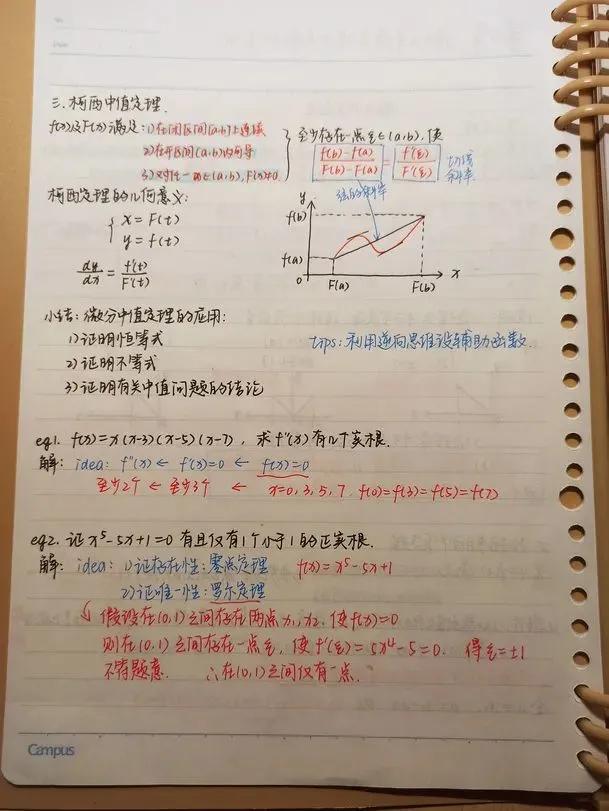 三.柯西中值定理.
f(x)及F(x)满足:1)在闭区间[a,b]上连续
2)在开区间(a,b)内可导
3)对任一x∈(a,b),F'(x)≠0
至少存在一点ξ∈(a,b),使
f(b)-f(a)/F(b)-F(a) = f'(ξ)/F'(ξ) 切线斜率
弦的斜率
柯西定理的几何意义:
{ x=F(t)
y=f(t)
dy/dx = f'(t)/F'(t)
y
f(b)
f(a)
0 F(a) F(b) x
小结:微分中值定理的应用:
1)证明恒等式
2)证明不等式
3)证明有关中值问题的结论
tips:利用逆向思维设辅助函数
eg1. f(x)=x(x-3)(x-5)(x-7),求f''(x)有几个实根.
解: idea: f''(x) ← f'(x)=0 ← f(x)=0
至少2个 ← 至少3个 ← x=0,3,5,7. f(0)=f(3)=f(5)=f(7)
eg2. 证x⁵-5x+1=0 有且仅有1个小于1的正实根.
解: idea: 1)证存在性:零点定理 f(x)=x⁵-5x+1
2)证唯一性:罗尔定理
假设在(0,1)之间存在两点x₁,x₂,使f(x)=0
则在(0,1)之间存在一点ξ,使f'(ξ)=5x⁴-5=0. 得ξ=±1
不符题意. ∴在(0,1)之间仅有一点.
Campus